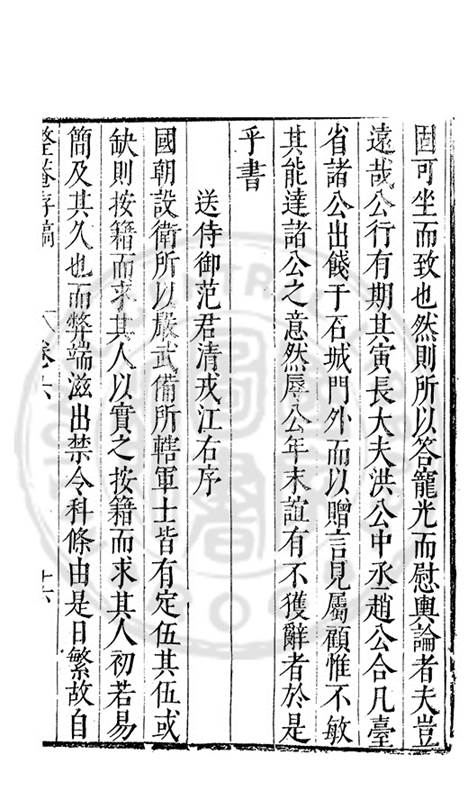 固可坐而致也然則所以答寵光而慰輿論者夫豈
遠哉公行有期其寅長大夫洪公中丞趙公合凡臺
省諸公出餞于石城門外而以贈言見屬顧惟不敏
其能達諸公之意然辱公年末誼有不獲辭者於是
乎書
送侍御范君清戎江右序
國朝設衛所以嚴武備所轄軍士皆有定伍其伍或
缺則按籍而求其人以實之按籍而求其人初若易
簡及其久也而弊端滋出禁令科條由是日繁故自
整菴存稿
卷六
十六